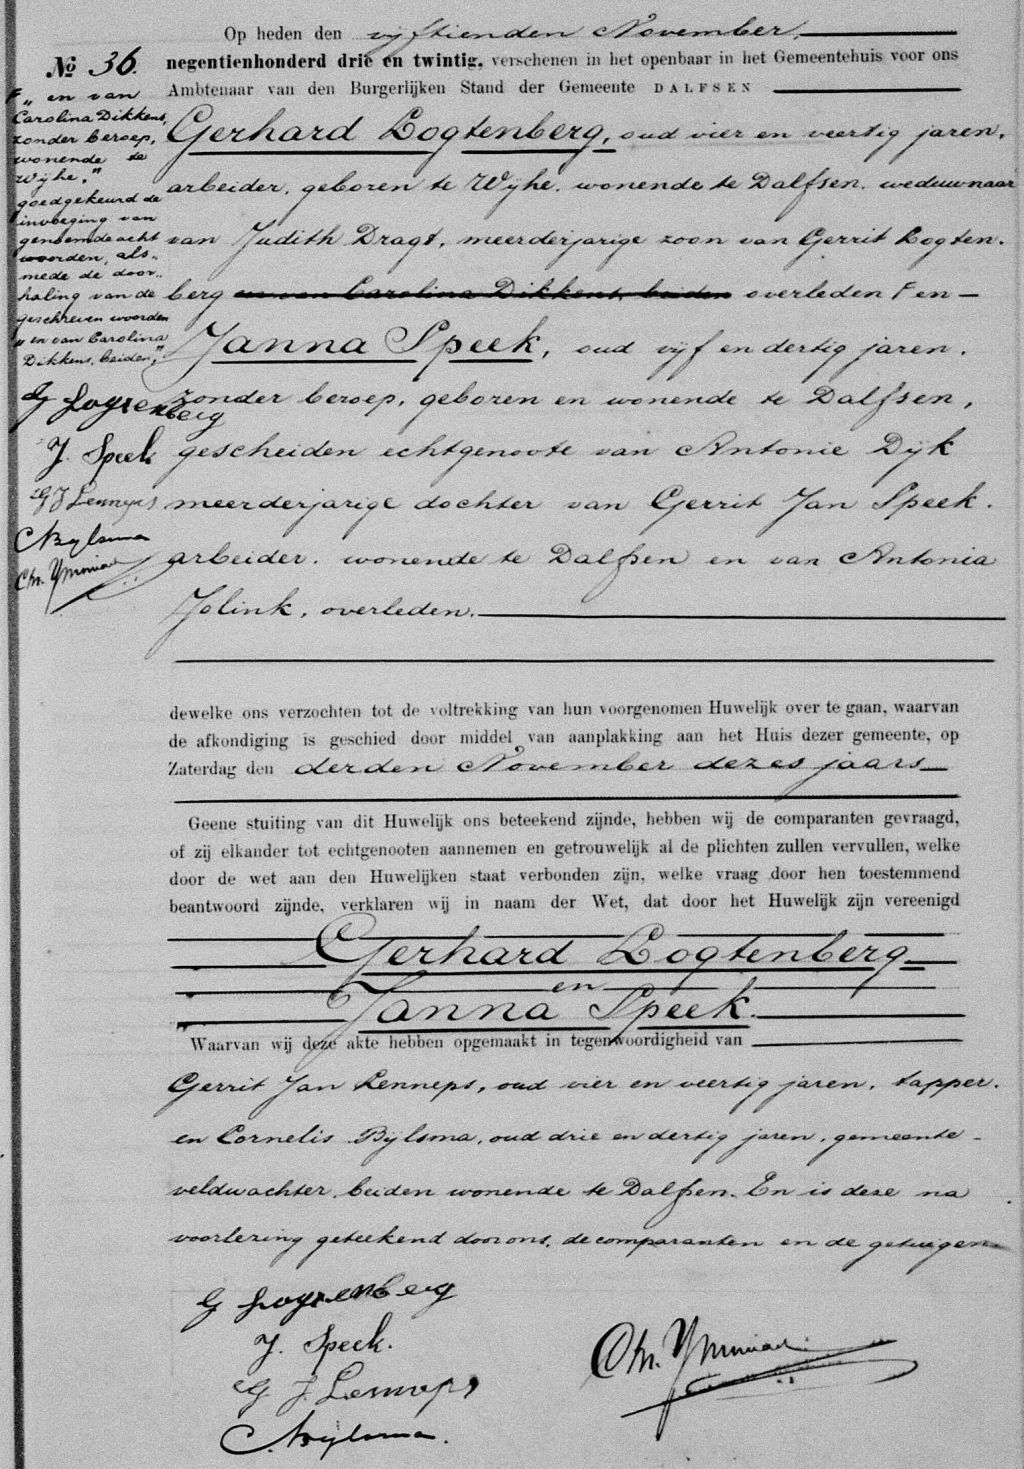 Op heden den vijftienden November,
No 36.
negentienhonderd drie en twintig, verschenen in het openbaar in het Gemeentehuis voor ons
Ambtenaar van den Burgerlijken Stand der Gemeente DALFSEN
F „ en van
Carolina Dikkens,
zonder beroep,
wonende te
Wijhe,"
goedgekeurd de
invoeging van
genoemde acht
woorden, als-
mede de door-
haling van de
geschreven woorden
„ en van Carolina
Dikkens, beiden,"
G Logtenberg
J. Speek
G J Lenneps
C Bijlsma
Gerhard Logtenberg, oud vier en veertig jaren,
arbeider, geboren te Wijhe, wonende te Dalfsen, weduwnaar
van Judith Dragt, meerderjarige zoon van Gerrit Logten-
berg en van Carolina Dikkens, beiden overleden F en
Janna Speek, oud vijf en dertig jaren,
zonder beroep, geboren en wonende te Dalfsen,
gescheiden echtgenoote van Antonie Dijk
meerderjarige dochter van Gerrit Jan Speek,
arbeider, wonende te Dalfsen en van Antonia
Jolink, overleden.
dewelke ons verzochten tot de voltrekking van hun voorgenomen Huwelijk over te gaan, waarvan
de afkondiging is geschied door middel van aanplakking aan het Huis dezer gemeente, op
Zaterdag den derden November dezes jaars
Geene stuiting van dit Huwelijk ons beteekend zijnde, hebben wij de comparanten gevraagd,
of zij elkander tot echtgenooten aannemen en getrouwelijk al de plichten zullen vervullen, welke
door de wet aan den Huwelijken staat verbonden zijn, welke vraag door hen toestemmend
beantwoord zijnde, verklaren wij in naam der Wet, dat door het Huwelijk zijn vereenigd
Gerhard Logtenberg
en
Janna Speek.
Waarvan wij deze akte hebben opgemaakt in tegenwoordigheid van
Gerrit Jan Lenneps, oud vier en veertig jaren, tapper,
en Cornelis Bijlsma, oud drie en dertig jaren, gemeente-
veldwachter, beiden wonende te Dalfsen. En is deze na
voorlezing geteekend door ons, de comparanten en de getuigen
G Logtenberg
J. Speek.
G J. Lenneps
C. Bijlsma.